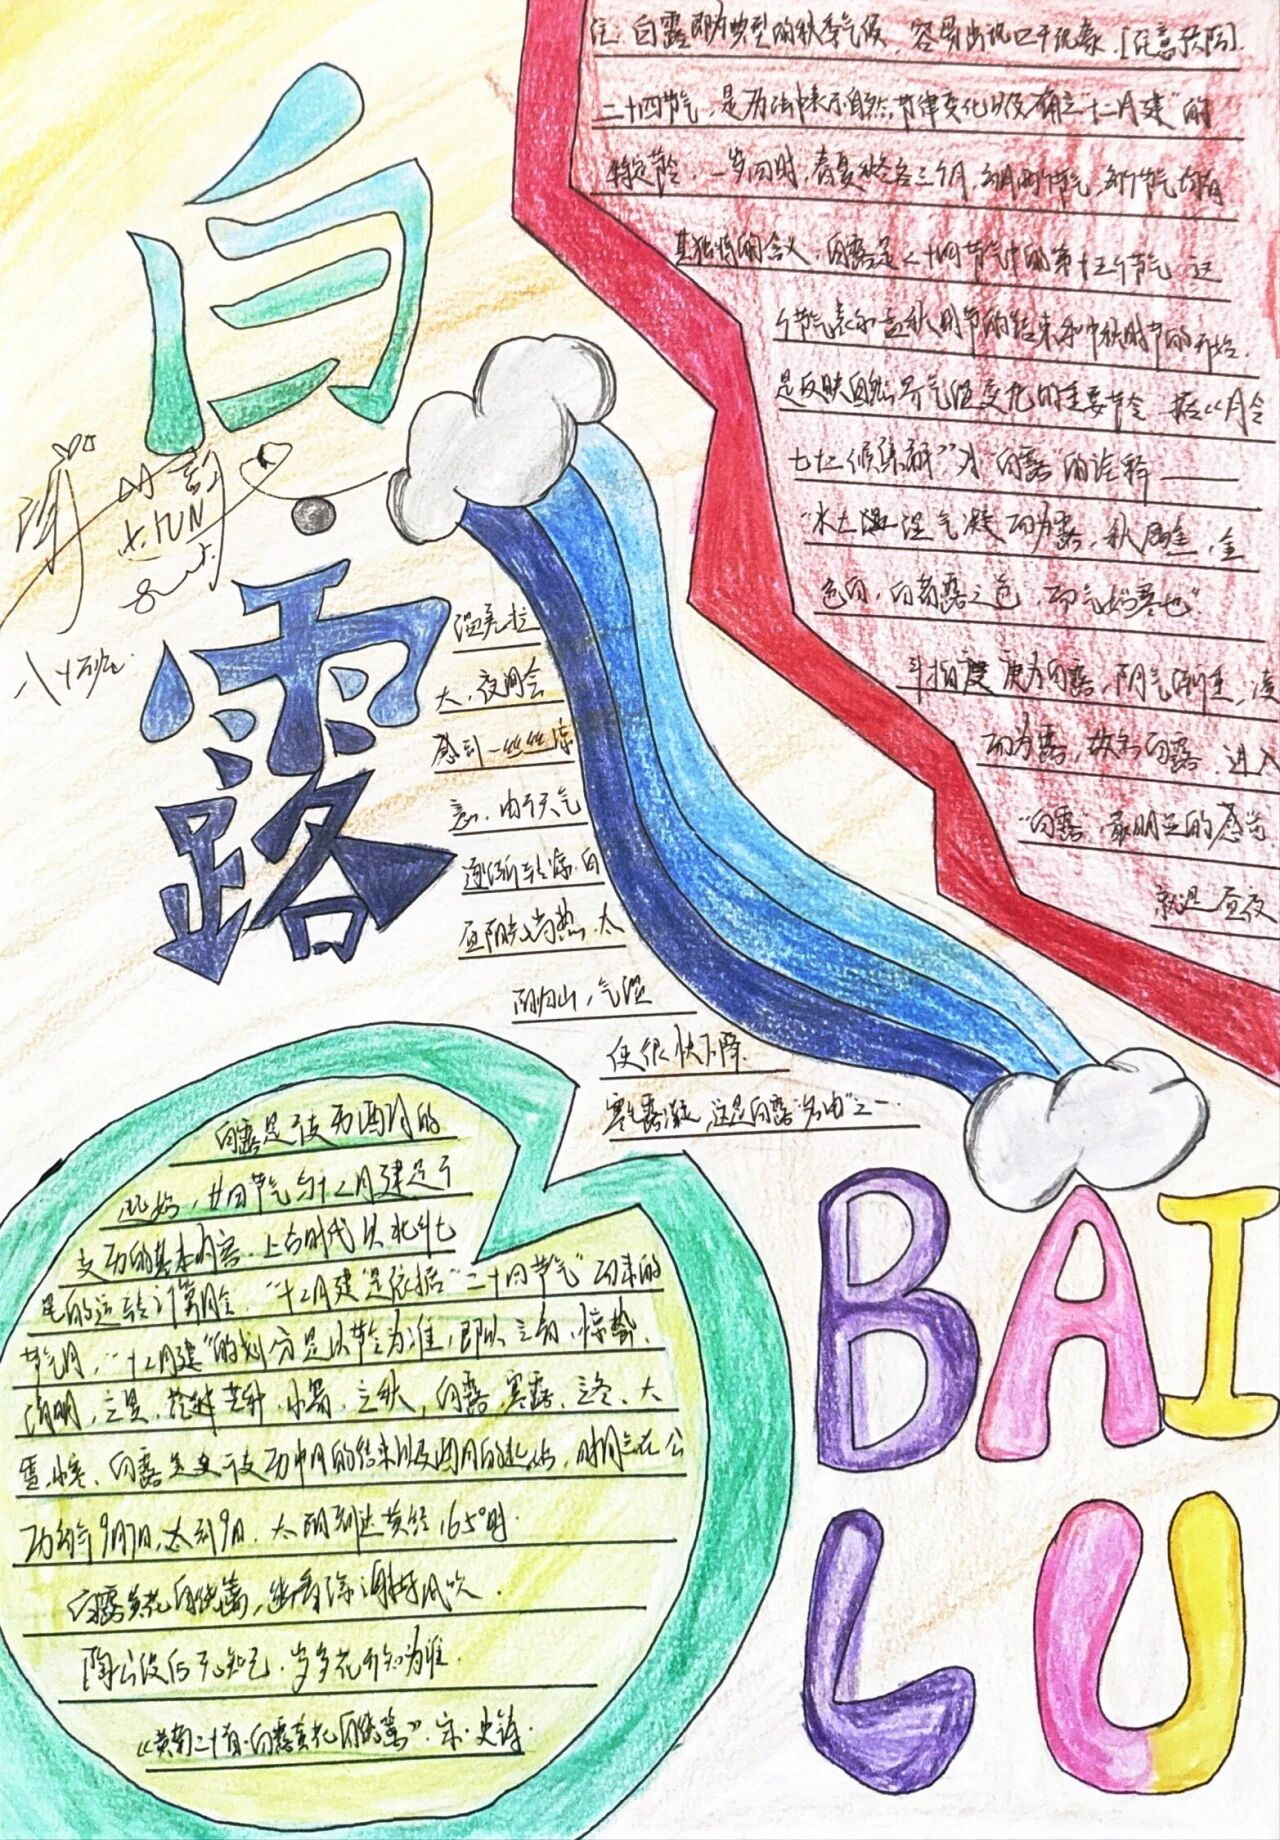 白
露
注：白露即为典型的秋季气候，容易出现口干现象．[注意预防].
二十四节气，是历法中表示自然节律变化以及确立“十二月建”的
特定节令．一岁四时，春夏秋冬各三个月，每月两个节气，每个节气均有
其独特的含义．白露是二十四节气中的第十五个节气．这
个节气表示孟秋时节的结束和仲秋时节的开始．
是反映自然界气温变化的重要节令．据《月令
七十二候集解》对“白露”的诠释——
“水土湿 湿气凝而为露，秋属金，金
色白，白者露之色，而气始寒也”
斗指庚为白露，阴气渐重，凌
而为露，故名白露．进入
“白露”，最明显的感觉
就是昼夜
温差拉
大，夜间会
感到一丝丝凉
意．由于天气
逐渐转凉．白
昼阳光尚热，太
阳归山，气温
便很快下降．
寒生露凝，这是白露“名由”之一．
八、班
白露是干支历酉月的
起始，廿四节气与十二月建是干
支历的基本内容．上古时代以北斗七
星的运转计算月令．“十二月建”是依据“二十四节气”而来的
节气月，“十二月建”的划分是以节令为准，即以立春、惊蛰、
清明，立夏，芒种，小暑，立秋，白露，寒露、立冬、大
雪、小寒．白露是干支历申月的结束以及酉月的起始，时间点在公
历每年9月7日，太到9日．太阳到达黄经165°时．
白露黄花自绕篱，
陶公没后无知己，岁岁花开知为谁．
《黄菊二十首·白露黄花自绕篱》．宋·史铸
BAI
LU